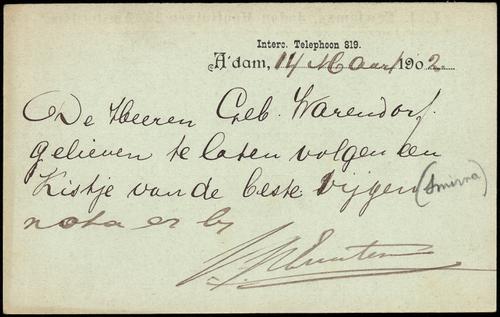 Interc. Telephoon 819.
A'dam, 14 Maart 1902.
De Heeren Geb. Warendorf.
gelieven te laten volgen een
Kistje van de beste vijgen (Smirna)
nota er bij